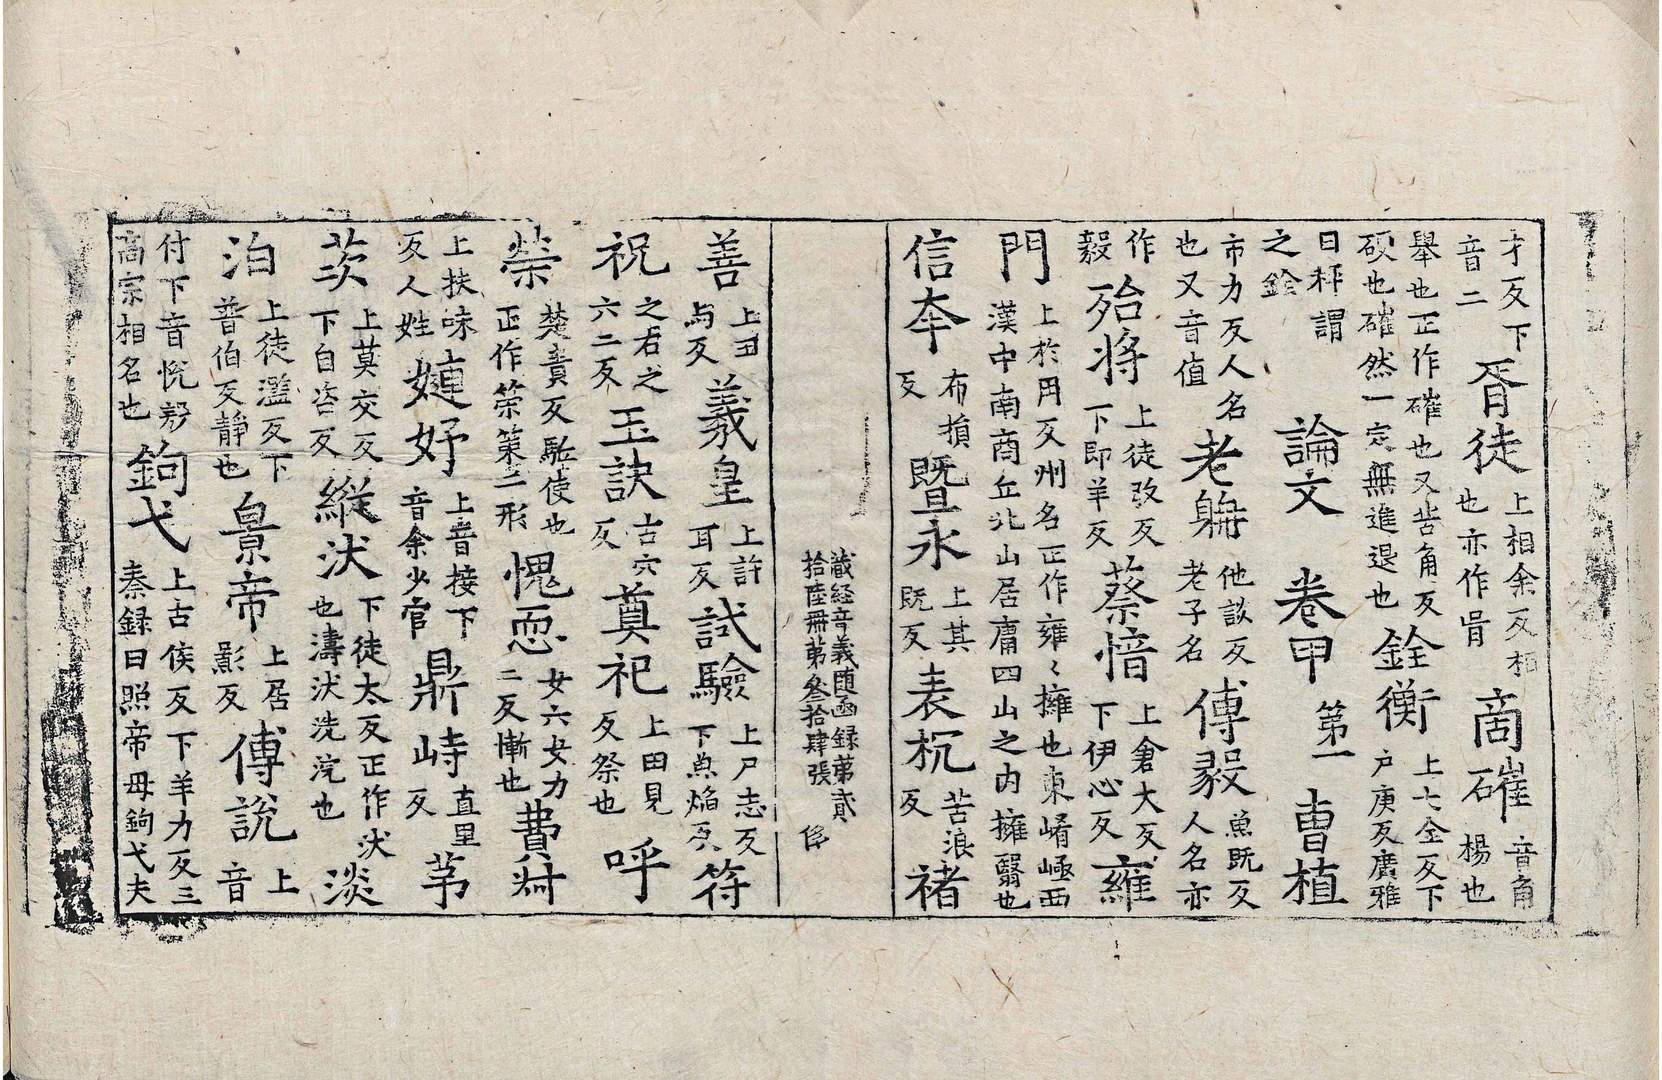 才反下音二胥徒上相余反相也亦作𦙃商確音角楊也
舉也正作確也又苦角反硪也確然一定無進退也銓衡上七全反下戶庚反廣雅
曰秤謂之銓
論文 卷甲 第一 曹植
市力反人名也又音值老聃他談反老子名傅毅魚既反人名亦
作毅殆將上徒改反下即羊反蔡愔上倉大反下伊心反雍
門上於用反州名正作雍〻擁也東崤嶓西漢中南商丘北山居庸四山之內擁翳也
信夲布損反暨永上其既反表杬苦浪反褚
藏経音義随函録第貳拾陸冊第叁拾肆張 侈
善上田与反羲皇上許耳反試驗上尸志反下魚焰反符
祝之右之六二反玉訣古穴反奠祀上田見反祭也呼
榮楚責反駈使也正作策筞二形愧恧女六女力二反慚也費㪰
上扶味反人姓婕妤上音接下音余少官鼎峙直里反茅
茨上莫交反下自咨反縱汏下徒太反正作汏也濤汏洗汔也淡
泊上徒濫反下普伯反靜也景帝上居影反傅說上音
付下音悅殷高宗相名也鉤弋上古侯反下羊力反三秦録曰照帝母鉤弋夫